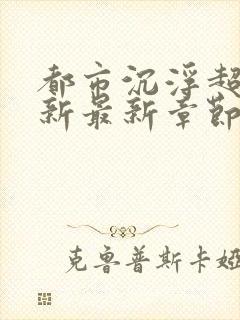 都市沉浮超
新最新章节
克鲁普斯卡娅